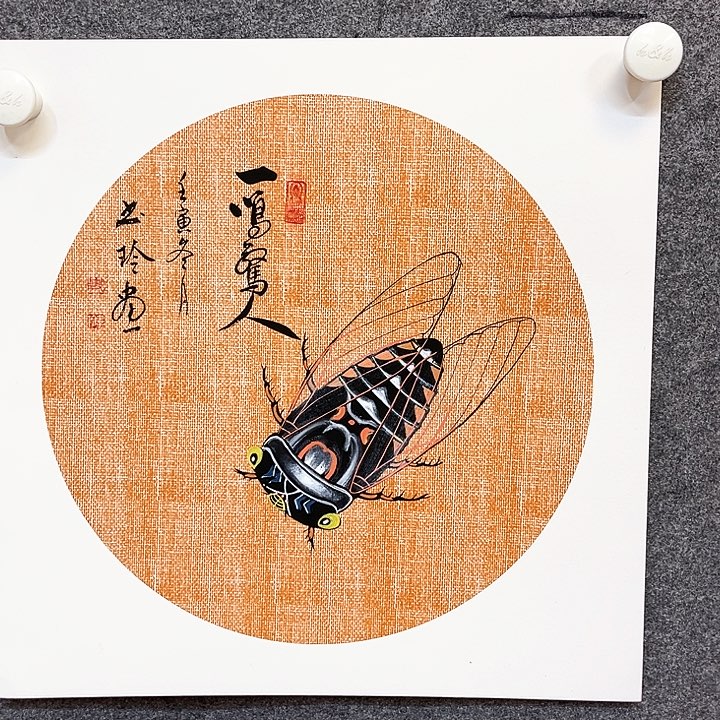 一鳴驚人
壬寅冬月
玲畫